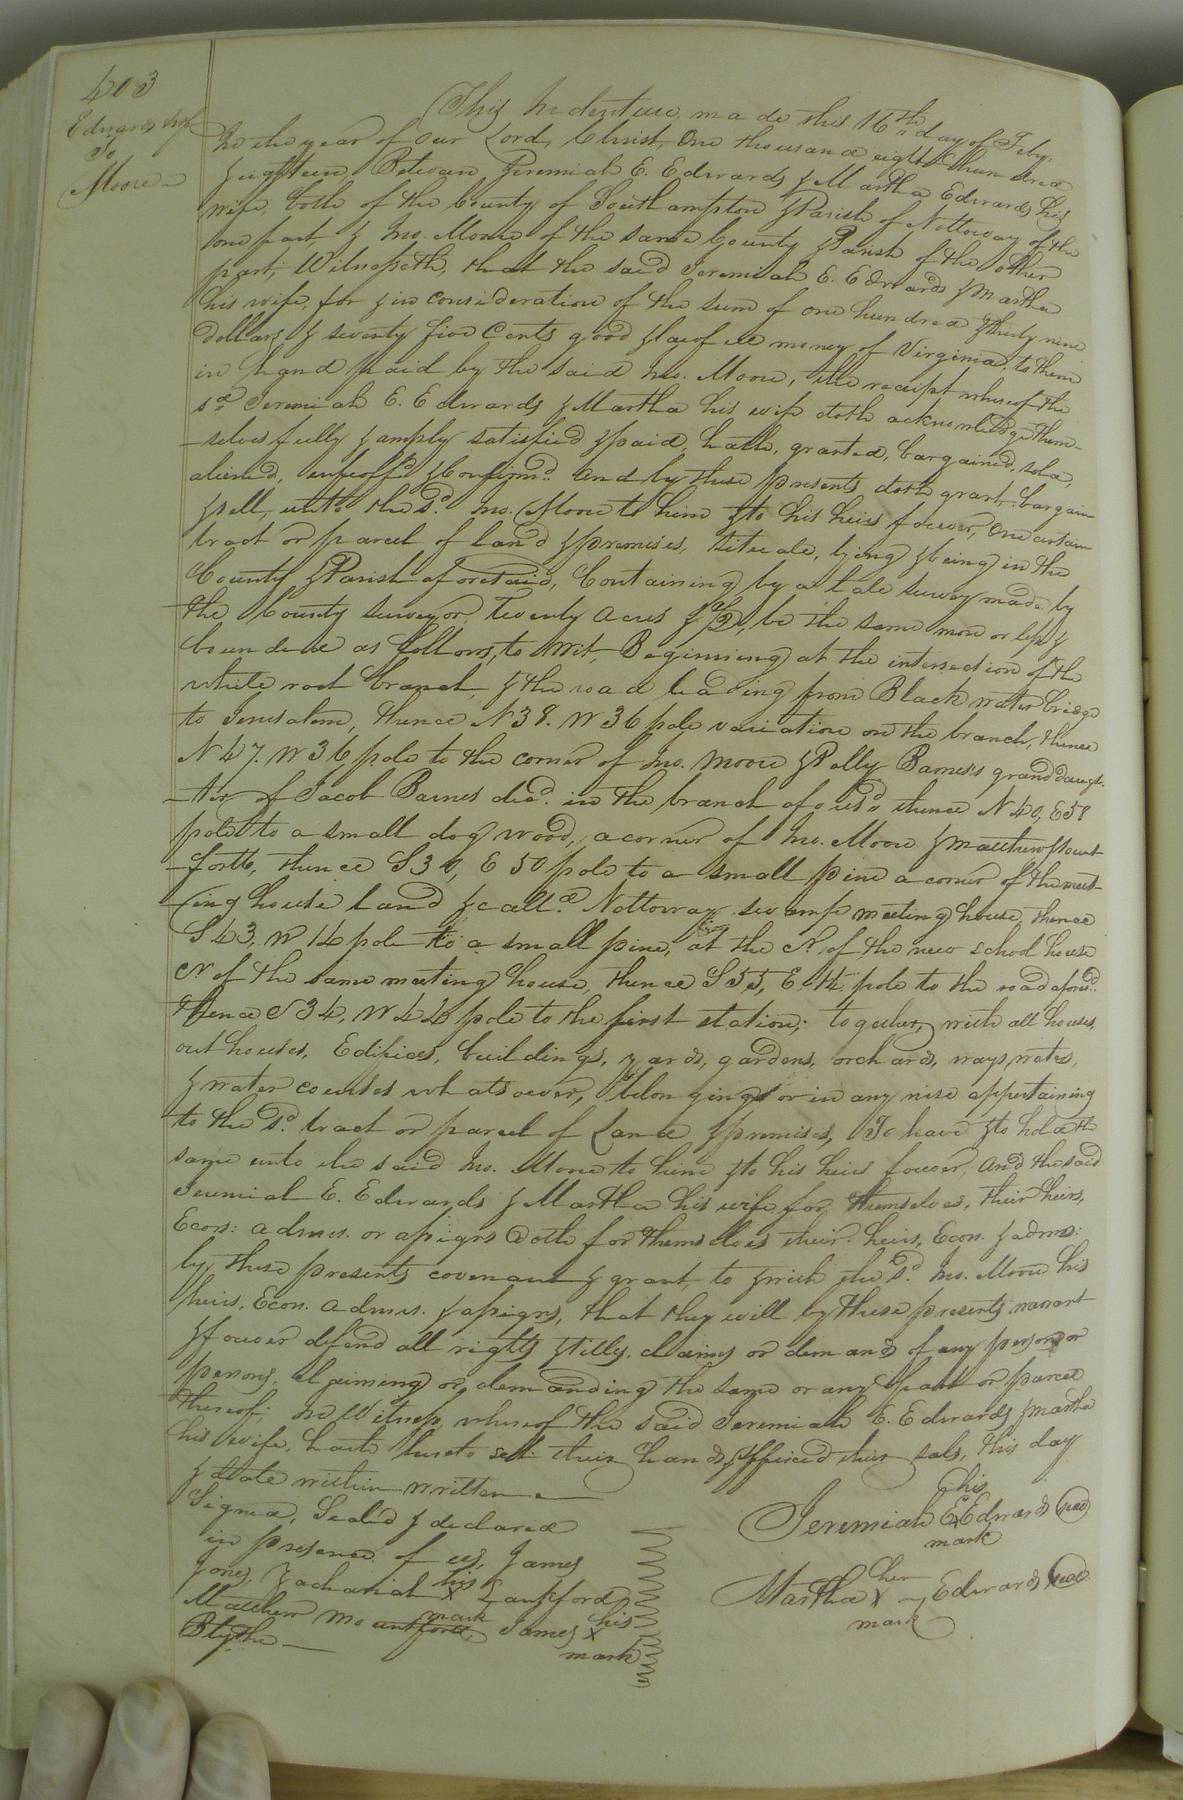 403
Edwards & wf
To
Moore
This Indenture, made this 16th day of Feby.
In the year of our Lord, Christ, One thousand eight hundred
& eighteen, Between Jeremiah E. Edwards & Martha Edwards his
wife, both of the County of Southampton & Parish of Nottoway of the
one part, & Jno. Moore of the same County & Parish of the other
part; Witnesseth, that the said Jeremiah E. Edwards & Martha
his wife, for & in consideration of the sum of one hundred & thirty nine
dollars & seventy five Cents good & lawfull money of Virginia, to them
in hand paid by the said Jno. Moore, the receipt whereof the
sd. Jeremiah E. Edwards & Martha his wife doth acknowledge them-
-selves fully & amply satisfied & paid, hath, granted, bargained, sold,
aliened, enfeoffd. & Confirmd. and by these presents doth grant, bargain
& sell, unto the sd. Jno. Moore to him & to his heirs forever, One certain
tract or parcel of land & premises, situate, lying & being in the
County & Parish aforesaid, Containing by a late survey made by
the County surveyor, Twenty Acres & 1/2, be the same more or less, &
bounded as follows, to Wit, Beginning at the intersection of the
white root branch, & the road leading from Black water bridge
to Jerusalem, thence N 38. W 36 pole variation on the branch, thence
N 47. W 36 pole to the corner of Jno. Moore & Polly Barnes's grand daugh-
-ter of Jacob Barnes decd. in the branch aforesd., thence N 40, E 58
pole to a small dog wood, a corner of Jno. Moore & Matthew Mount
-forth, thence S 30, E 50 pole to a small pine a corner of the meet-
-ing house land & calld. Nottoway swamp meeting house, thence
S 43, W 14 pole to a small pine, at the N. of the new school house
N of the same meeting house, thence S 55, E. 14 pole to the road aforesd.
thence S 34, W 44 pole to the first station; together, with all houses,
out houses, Edifices, buildings, yards, gardens, orchards, ways, waters,
& water courses whatsoever, belonging or in any wise appertaining
to the sd. tract or parcel of Land & premises, To have & to hold the
same unto the said Jno. Moore to him & to his heirs forever, and the said
Jeremiah E. Edwards & Martha his wife for themselves, their heirs,
Ecors: admrs. or assigns doth for themselves their heirs, Ecors. & admrs:
by these presents covenant & grant, to & with the sd. Jno. Moore his
heirs, Ecors. admrs. & assigns, that they will by these presents warrant
& forever defend all rights & titles, claims or demands of any person or
persons, claiming or demanding the same or any part or parcel
thereof; In Witness whereof the said Jeremiah E. Edwards & Martha
his wife, hath hereto sett their hands & affixed their seals, this day
& date within written
Signed, Sealed & declared
in presence of us, James
Jones, Zachariah his X mark Lankford,
Matthew Mountforth, James his X mark
Blythe
his
Jeremiah E X Edwards seal
mark
her
Martha X Edwards seal
mark